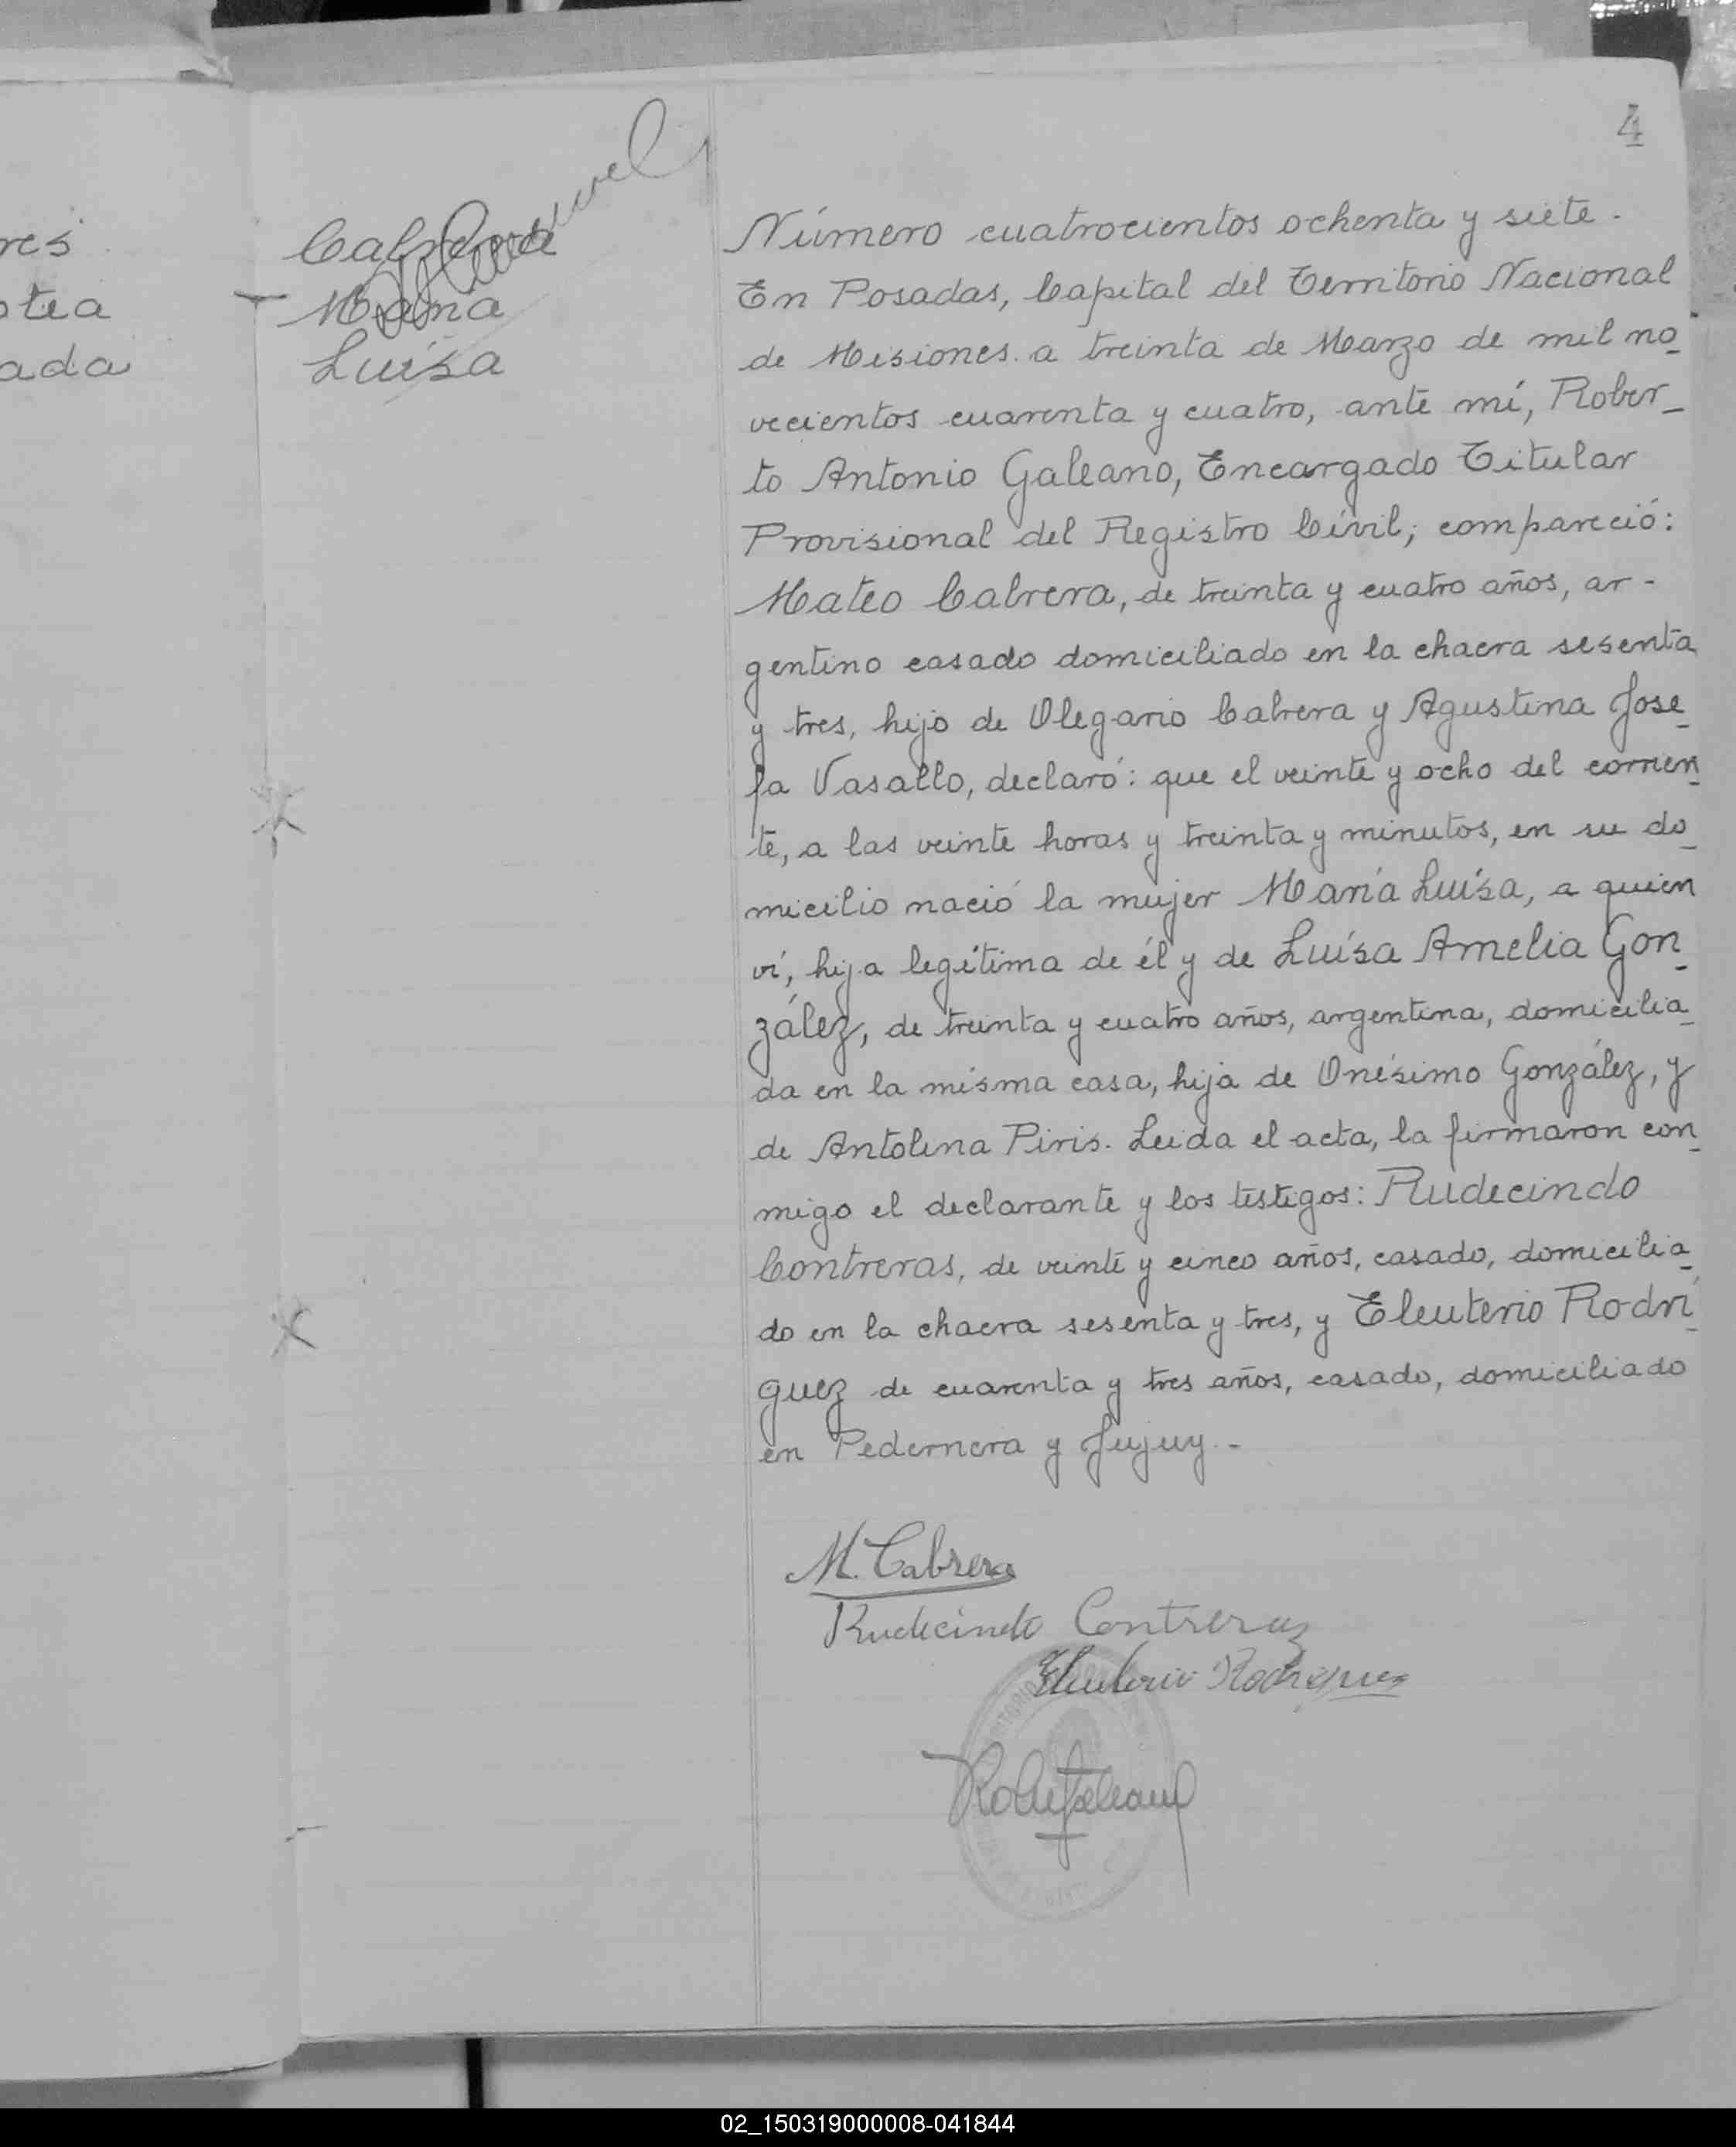 4
res
otea
ada
Cabrera
María
Luisa
Número cuatrocientos ochenta y siete.
En Posadas, Capital del Territorio Nacional
de Misiones. a treinta de Marzo de mil no_
vecientos cuarenta y cuatro, ante mí, Rober_
to Antonio Galeano, Encargado Titular
Provisional del Registro Civil; compareció:
Mateo Cabrera, de treinta y cuatro años, ar-
gentino casado domiciliado en la chacra sesenta
y tres, hijo de Olegario Cabrera y Agustina Jose_
fa Vasallo, declaró: que el veinte y ocho del corrien_
te, a las veinte horas y treinta y minutos, en su do_
micilio nació la mujer María Luísa, a quien
ví, hija legítima de él y de Luísa Amelia Gon_
zález, de treinta y cuatro años, argentina, domicilia_
da en la misma casa, hija de Onésimo González, y
de Antolina Piris. Leida el acta, la firmaron con_
migo el declarante y los testigos: Rudecindo
Contreras, de veinte y cinco años, casado, domicilia_
do en la chacra sesenta y tres, y Eleuterio Rodrí_
guez de cuarenta y tres años, casado, domiciliado
en Pedernera y Jujuy.-
M. Cabrera
Rudecindo Contreras
Eleuterio Rodriguez
02_150319000008-041844